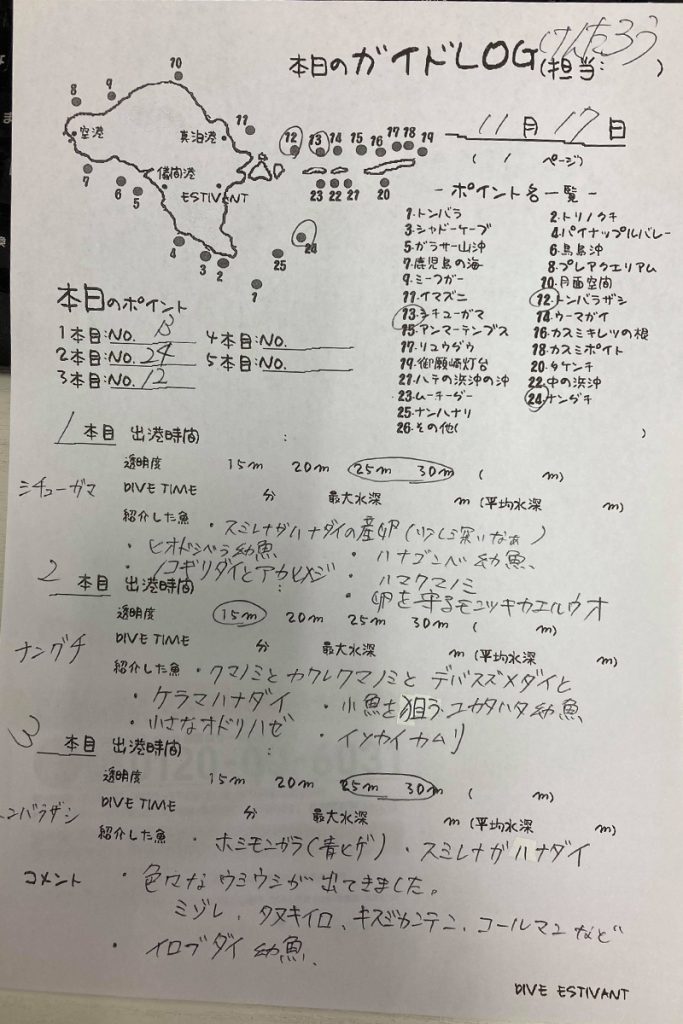 本日のガイドLOG(担当: けんたろう )
11月17日
( 1 ページ)
10
8
9
空港
真泊港
11
12
13
14
15
16
17
18
19
儀間港
ESTIVANT
7
6
5
23
22
21
20
4
3
2
24
25
1
- ポイント名一覧 -
1.トンバラ 2.トリノクチ
3.シャドーケーブ 4.パイナップルバレー
5.ガラサー山沖 6.鳥島沖
7.鹿児島の海 8.プレアクエリアム
9.ミーフガー 10.月面空間
11.イマズニ 12.トンバラザシ
13.シチューガマ 14.ウーマガイ
15.アンマーテンブス 16.カスミキレツの根
17.リュウグウ 18.カスミポイト
19.御願崎灯台 20.タケンチ
21.ハテの浜沖の沖 22.中の浜沖
23.ムーチーダー 24.ナングチ
25.ナンハナリ
26.その他( )
本日のポイント
1本目:NO. 13 4本目:NO.
2本目:NO. 24 5本目:NO.
3本目:NO. 12
1 本目 出港時間 :
透明度 15m 20m 25m 30m ( m)
シチューガマ
DIVE TIME 分 最大水深 m (平均水深 m)
紹介した魚 ・スミレナガハナダイの産卵(少しら深いなぁ)
・ヒオドシベラ幼魚 ・ハナゴンベ幼魚、
・ノコギリダイとアカヒメジ ・ハマクマノミ
・卵を守るモンツキカエルウオ
2 本目 出港時間 :
透明度 15m 20m 25m 30m ( m)
ナングチ
DIVE TIME 分 最大水深 m (平均水深 m)
紹介した魚 ・クマノミとカクレクマノミとデバスズメダイと
・ケラマハナダイ ・小魚を狙うユカタハタ幼魚
・小さなオドリハゼ ・イソカイカムリ
3 本目 出港時間 :
透明度 15m 20m 25m 30m ( m)
トンバラザシ
DIVE TIME 分 最大水深 m (平均水深 m)
紹介した魚 ・ホシモンガラ(青ヒゲ) ・スミレナガハナダイ
コメント ・色々なウミウシが出てきました。
ミゾレ、タヌキイロ、キスジカンテン、コールマンなど
・イロブダイ幼魚、
DIVE ESTIVANT